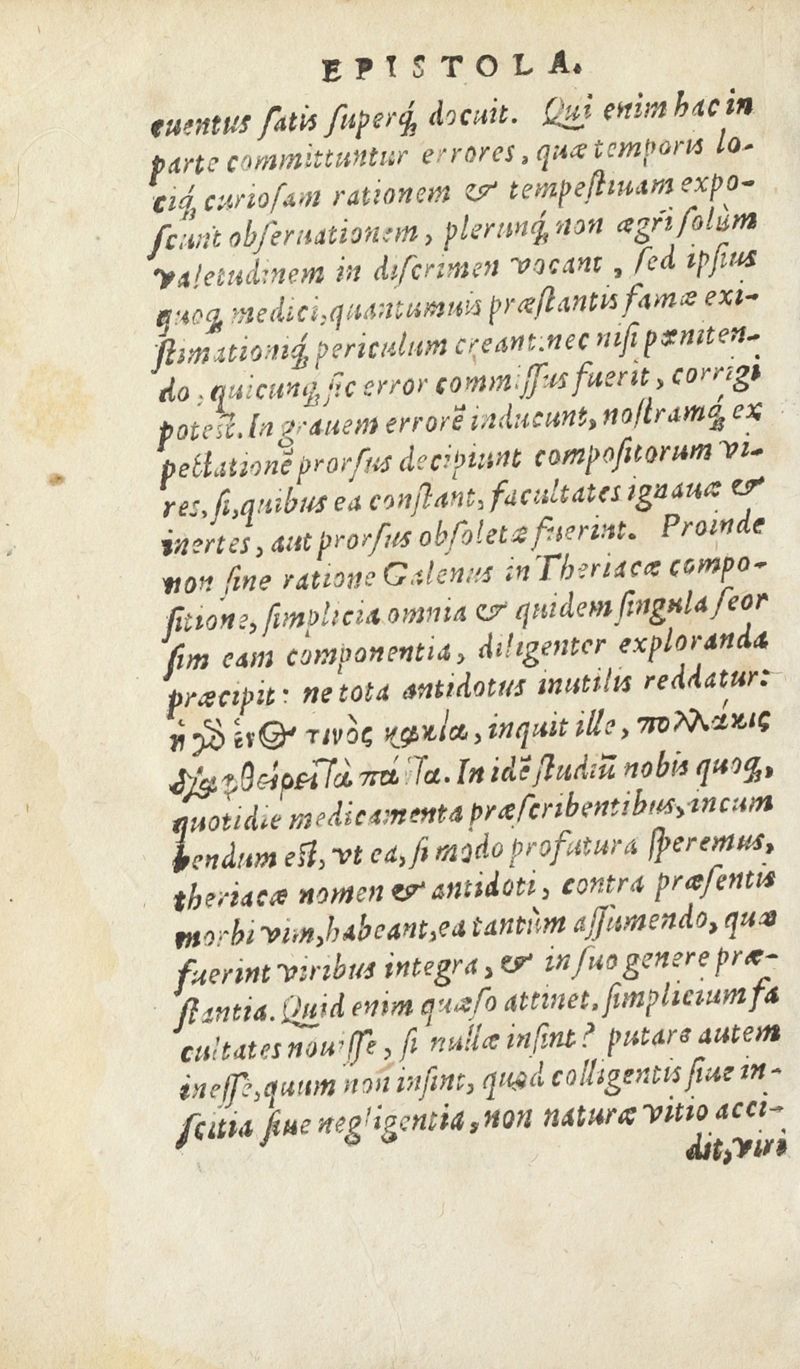 EPISTOLA.
euentus ſatis ſuperq́; docuit. Qui enim hac in
parte committuntur errores, quæ temporis lo-
ciq́; curioſam rationem & tempeſtiuam expo-
ſcunt obſeruationem, plerunq́; non ægri ſolùm
valetudinem in diſcrimen vocant, ſed ipſius
quoq; medici, quantumuis præſtantis famæ exi-
ſtimationiq́; periculum creant: nec niſi pœniten-
do, quicunq; ſic error commiſſus fuerit, corrigi
poteſt. In grauem errorē inducunt, noſtramq́; ex
pectationē prorſus decipiunt compoſitorum vi-
res, ſi, quibus ea conſtant, facultates ignauæ &
inertes, aut prorſus obſoletæ fuerint. Proinde
non ſine ratione Galenus in Theriacæ compo-
ſitione, ſimplicia omnia & quidem ſingula ſeor
ſim eam componentia, diligenter exploranda
præcipit: ne tota antidotus inutilis reddatur:
ἡ γὸ ἑνὸς τινὸς κακία, inquit ille, πολλάκις
διαφθείρει τὰ πάντα. In idē ſtudiū nobis quoq;,
quotidie medicamenta præſcribentibus, incum
bendum eſt, vt ea, ſi modo profutura ſperemus,
theriacæ nomen & antidoti, contra præſentis
morbi vim, habeant, ea tantùm aſſumendo, quæ
fuerint viribus integra, & in ſuo genere præ-
ſtantia. Quid enim quæſo attinet, ſimplicium fa
cultates nouiſſe, ſi nullæ inſint? putare autem
ineſſe, quum non inſint, quod colligentis ſiue in-
ſcitia ſiue negligentia, non naturæ vitio acci-
dit, viri